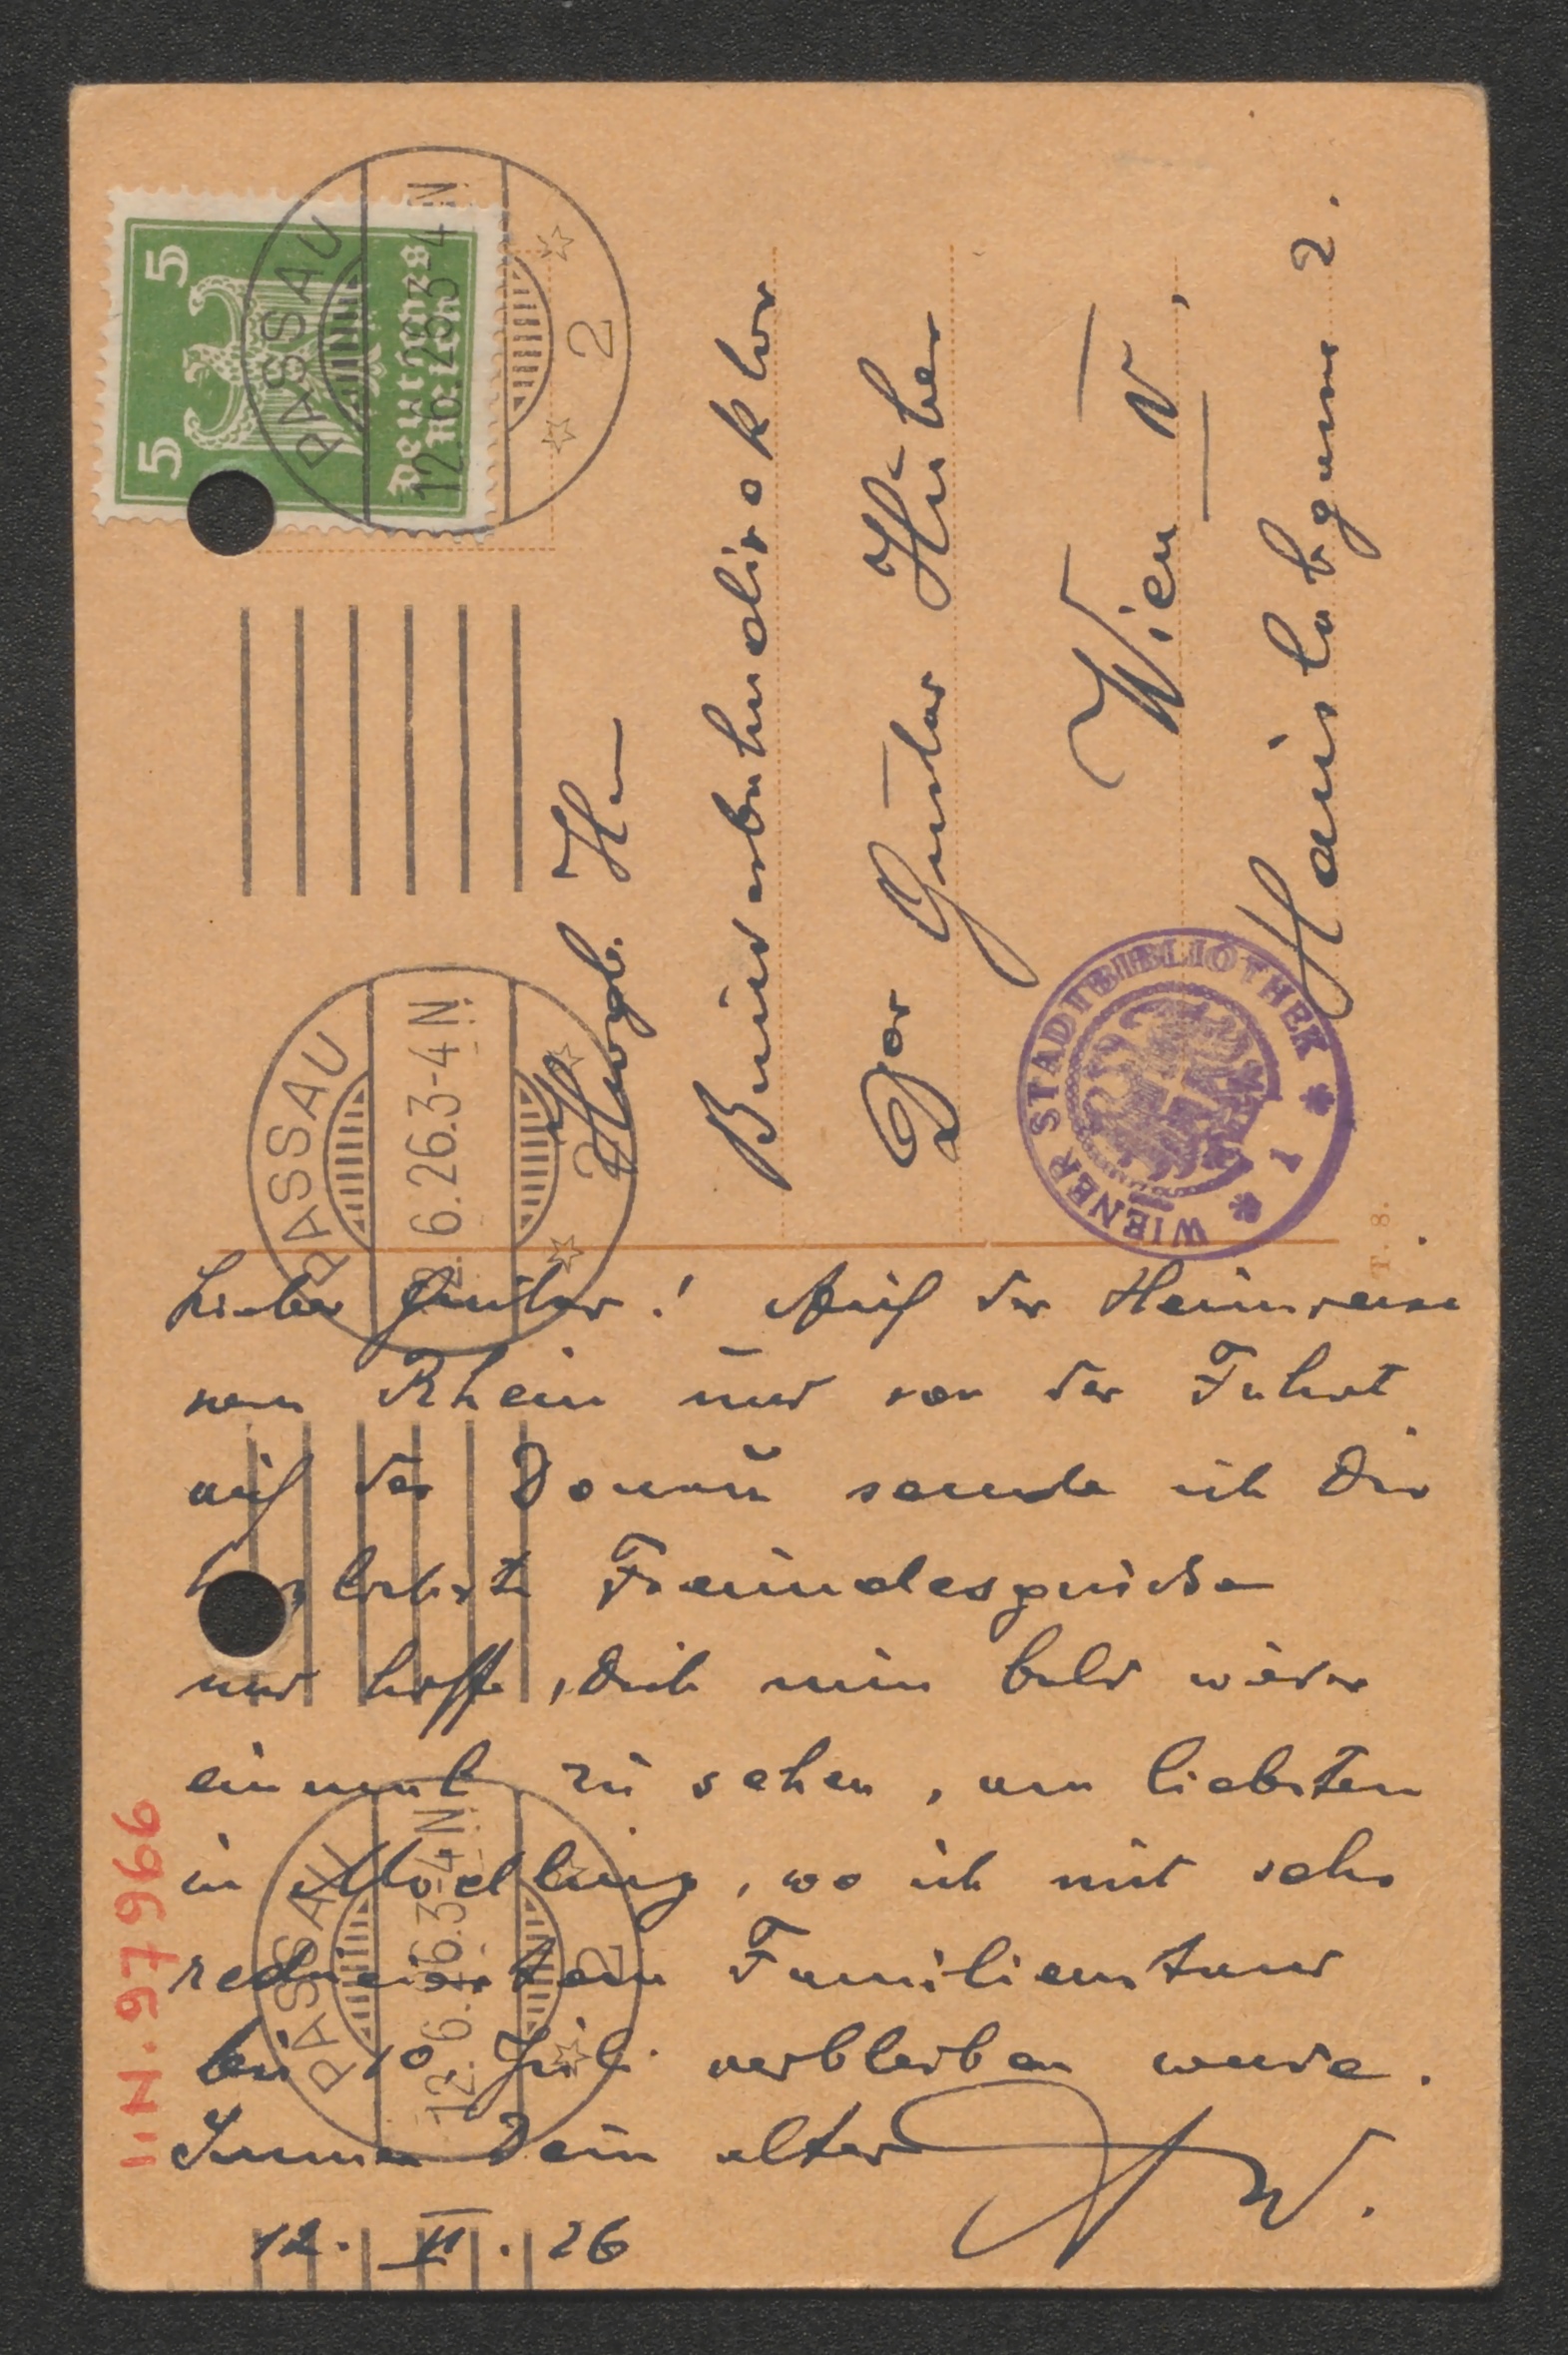 5 5
Deutsches
Reich
PASSAU
12.6.26.3-4 N
2
PASSAU
6.26.3-4 N
2
PASSAU
12.6.26.3-4 N
2
Hwgb. Hn
Bundesbahndirektor
Gustav Huber
Wien IV,
Hauslabgasse 2.
WIENER STADTBIBLIOTHEK
1
T. 8.
Lieber Gustav! Auf der Heimreise
vom Rhein und vor der Fahrt
auf der Donau sende ich Dir
herzlichste Freundesgrüsse
und hoffe, Dich nun bald wieder
einmal zu sehen, am liebsten
in Mödling, wo ich mit sehr
reduziertem Familienstand
bis 10. Juli verbleiben werde.
Immer Dein alter
W.
12. VI. 26
I.N. 97966